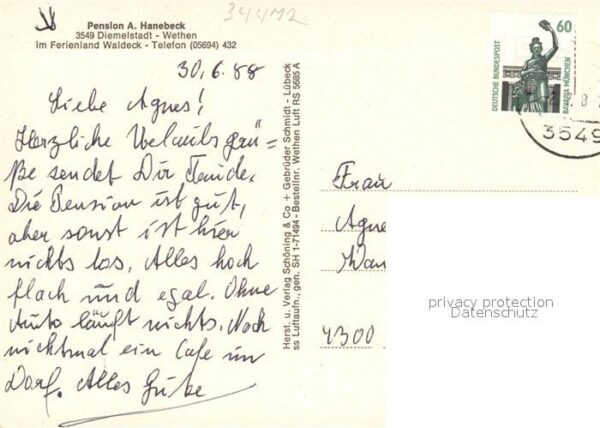 344M2
Pension A. Hanebeck
3549 Diemelstadt - Wethen
im Ferienland Waldeck - Telefon (05694) 432
30.6.88
Liebe Agnes!
Herzliche Urlaubsgrü=
ße sendet Dir
Die Pension ist gut,
aber sonst ist hier
nichts los. Alles hoch
flach und egal. Ohne
Auto läuft nichts. Noch
nichtmal ein Cafe im
Dorf. Alles Gute
Herst. u. Verlag Schöning & Co + Gebrüder Schmidt - Lübeck
ss Luftaufn., gen. SH 1-71494 - Bestellnr. Wethen Luft RS 5685 A
60
DEUTSCHE BUNDESPOST
BAVARIA MÜNCHEN
3549
Frau
Agne
4300
privacy protection
Datenschutz